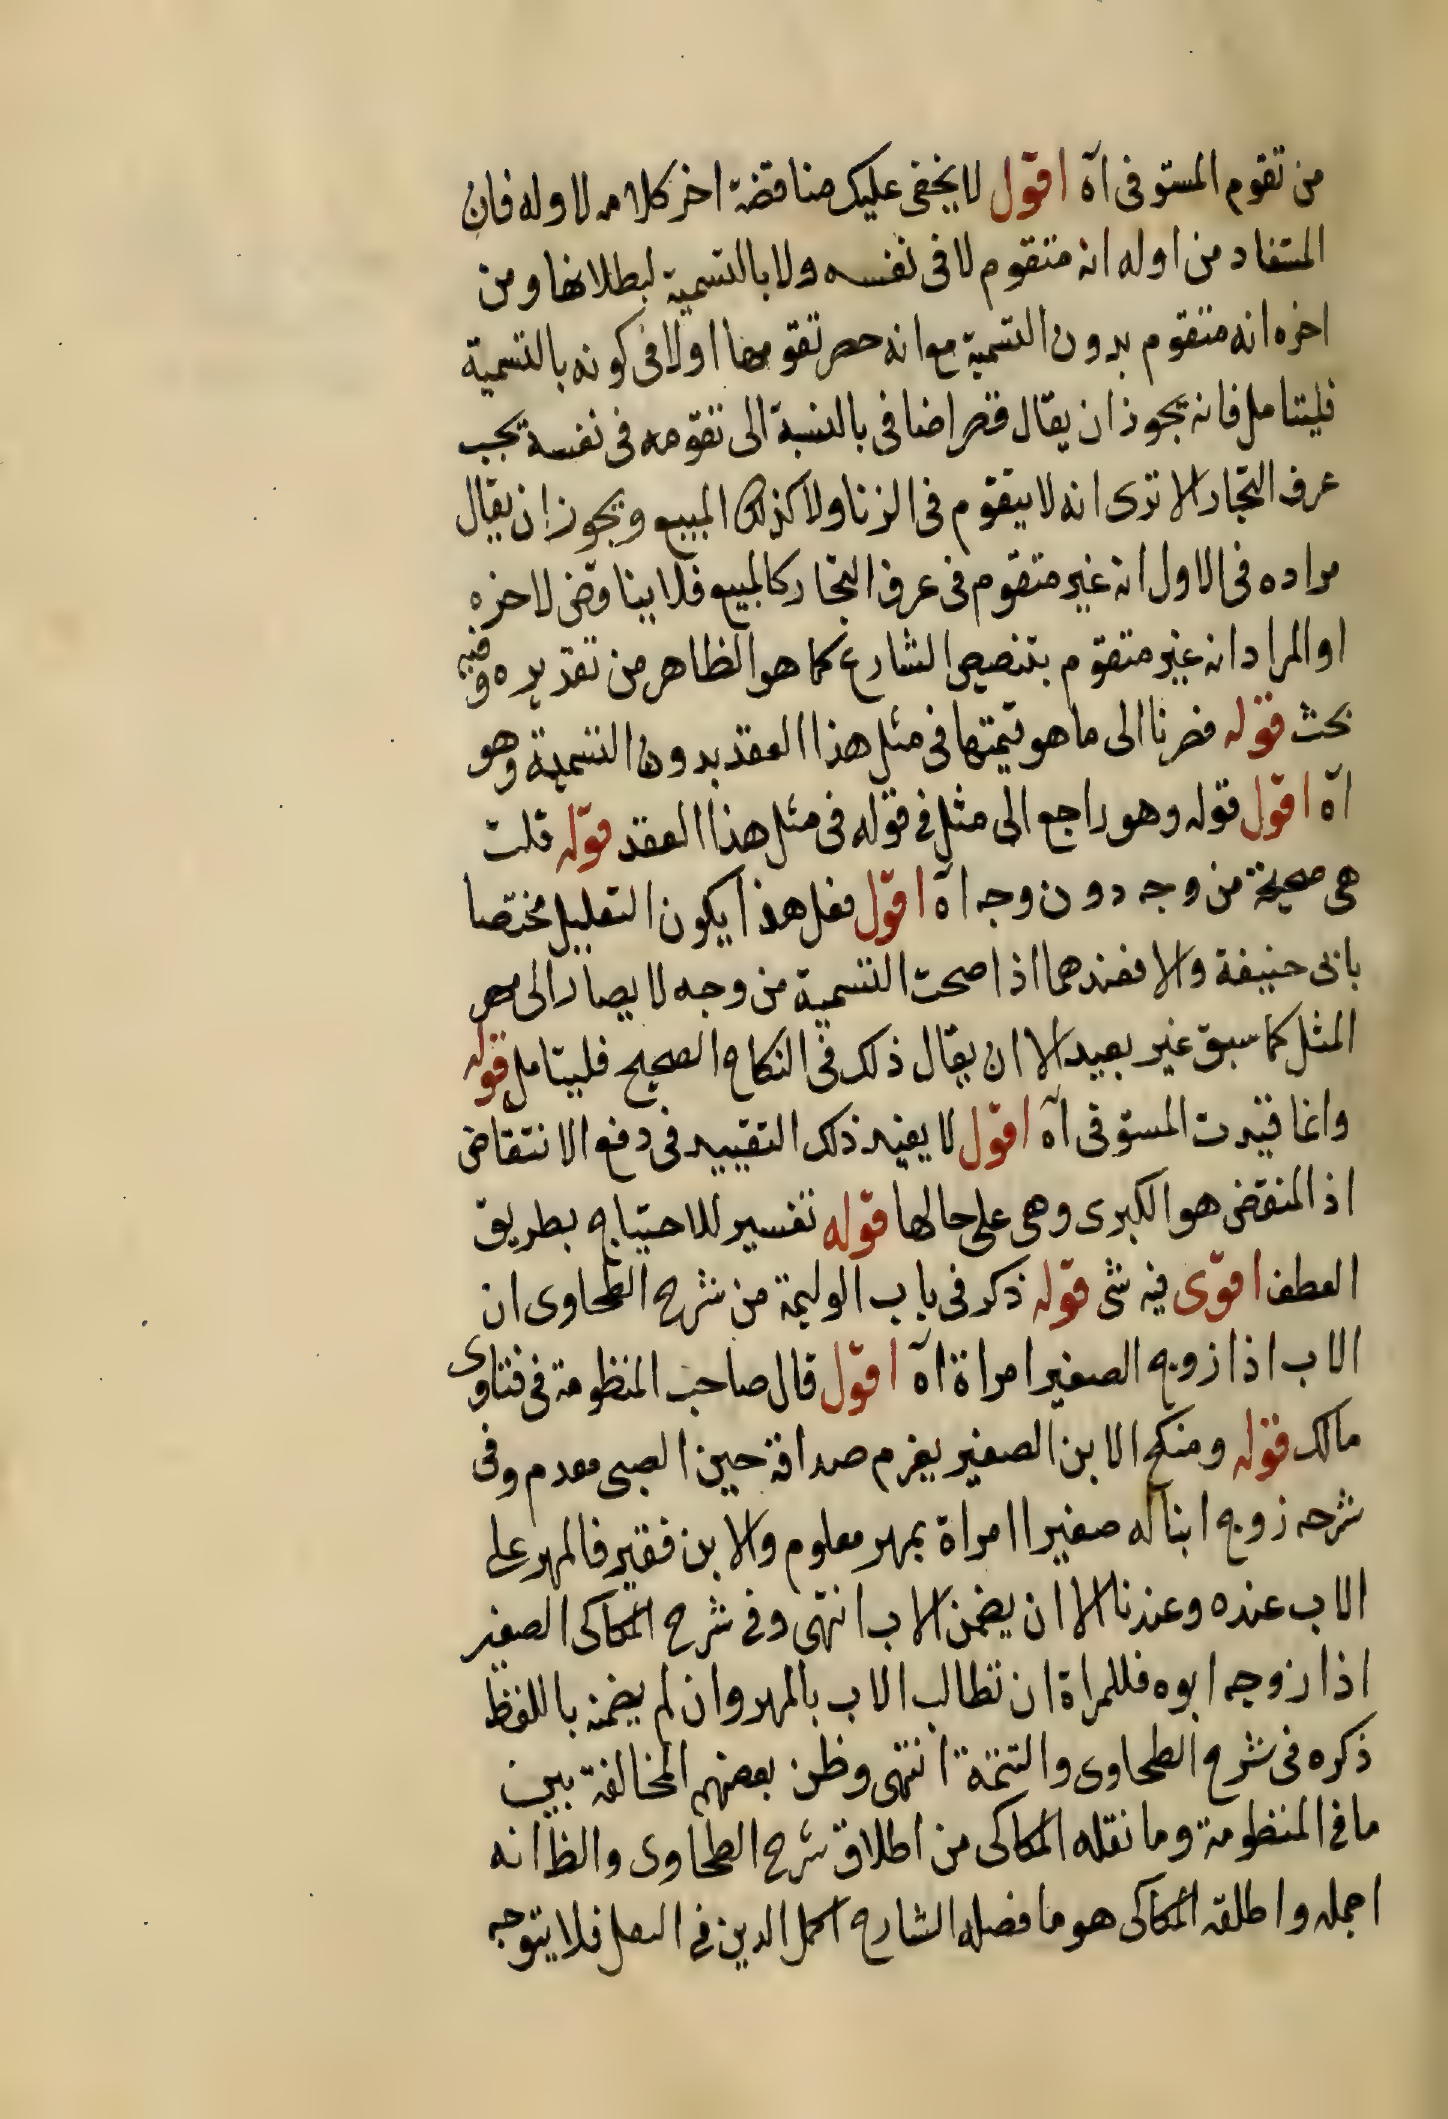 من تقوم المستوفى آه اقول لا يخفى عليك مناقضة اخر كلامه لاوله فان
المستفاد من اوله انه متقوم لا فى نفسه ولا بالتسمية لبطلانها ومن
اخره انه متقوم بدون التسمية مع انه حصر تقومها اولا فى كونه بالتسمية
فليتامل فانه يجوز ان يقال قصر اضافى بالنسبة الى تقومه فى نفسه يجب
عرف التجار الا ترى انه لا يتقوم فى الزنا ولا كذلك المبيع ويجوز ان يقال
مراده فى الاول انه غير متقوم فى عرف التجار كالمبيع فلا يناقض لاخره
او المراد انه غير متقوم بتنصيص الشارع كما هو الظاهر من تقديره وفيه
بحث قوله فصرنا الى ما هو قيمتها فى مثل هذا العقد بدون التسمية وهو
آه اقول قوله وهو راجع الى مثل فى قوله فى مثل هذا العقد قوله قلت
هى صحيحة من وجه دون وجه آه اقول فعل هذا يكون التعليل مختصا
بابى حنيفة والا فعندهما اذا صحت التسمية من وجه لا يصار الى مهر
المثل كما سبق غير بعيد الا ان يقال ذلك فى النكاح الصحيح فليتامل قوله
وانما قيدت المستوفى آه اقول لا يفيد ذلك التقييد فى دفع الانتقاض
اذ المنقض هو الكبرى وهى على حالها قوله تفسير للاحتياج بطريق
العطف اقوى فيه شى قوله ذكر فى باب الوليمة من شرح الطحاوى ان
الاب اذا زوج الصغير امراة آه اقول قال صاحب المنظومة فى فتاوى
مالك قوله ومنكح الابن الصغير يغرم صداقه حين الصبى معدم وفى
شرحه زوج ابنا له صغيرا امراة بمهر معلوم والابن فقير فالمهر على
الاب عنده وعندنا الا ان يضمن الاب انتهى وفى شرح الكاكى الصغير
اذا زوجه ابوه فللمراة ان تطالب الاب بالمهر وان لم يضمنه باللفظ
ذكره فى شرح الطحاوى والتتمة انتهى وظن بعضهم المخالفة بين
ما فى المنظومة وما نقله الكاكى من اطلاق شرح الطحاوى والظ انه
اجمله واطلقه الكاكى هو ما فصله الشارح اكمل الدين فى النعل فلا يتوجه